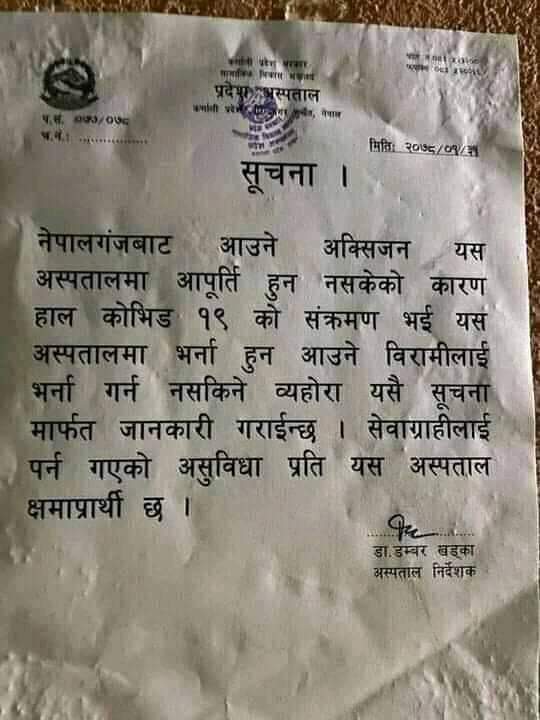 कर्णाली प्रदेश सरकार
सामाजिक विकास मन्त्रालय
प्रदेश अस्पताल
कर्णाली प्रदेश सुर्खेत, नेपाल
प.सं. ०७७/०७८
च.नं.: ..............
मितिः २०७८/०१/३१
सूचना ।
नेपालगंजबाट आउने अक्सिजन यस
अस्पतालमा आपूर्ति हुन नसकेको कारण
हाल कोभिड १९ को संक्रमण भई यस
अस्पतालमा भर्ना हुन आउने विरामीलाई
भर्ना गर्न नसकिने व्यहोरा यसै सूचना
मार्फत जानकारी गराईन्छ । सेवाग्राहीलाई
पर्न गएको असुविधा प्रति यस अस्पताल
क्षमाप्रार्थी छ ।
डा.डम्बर खड्का
अस्पताल निर्देशक